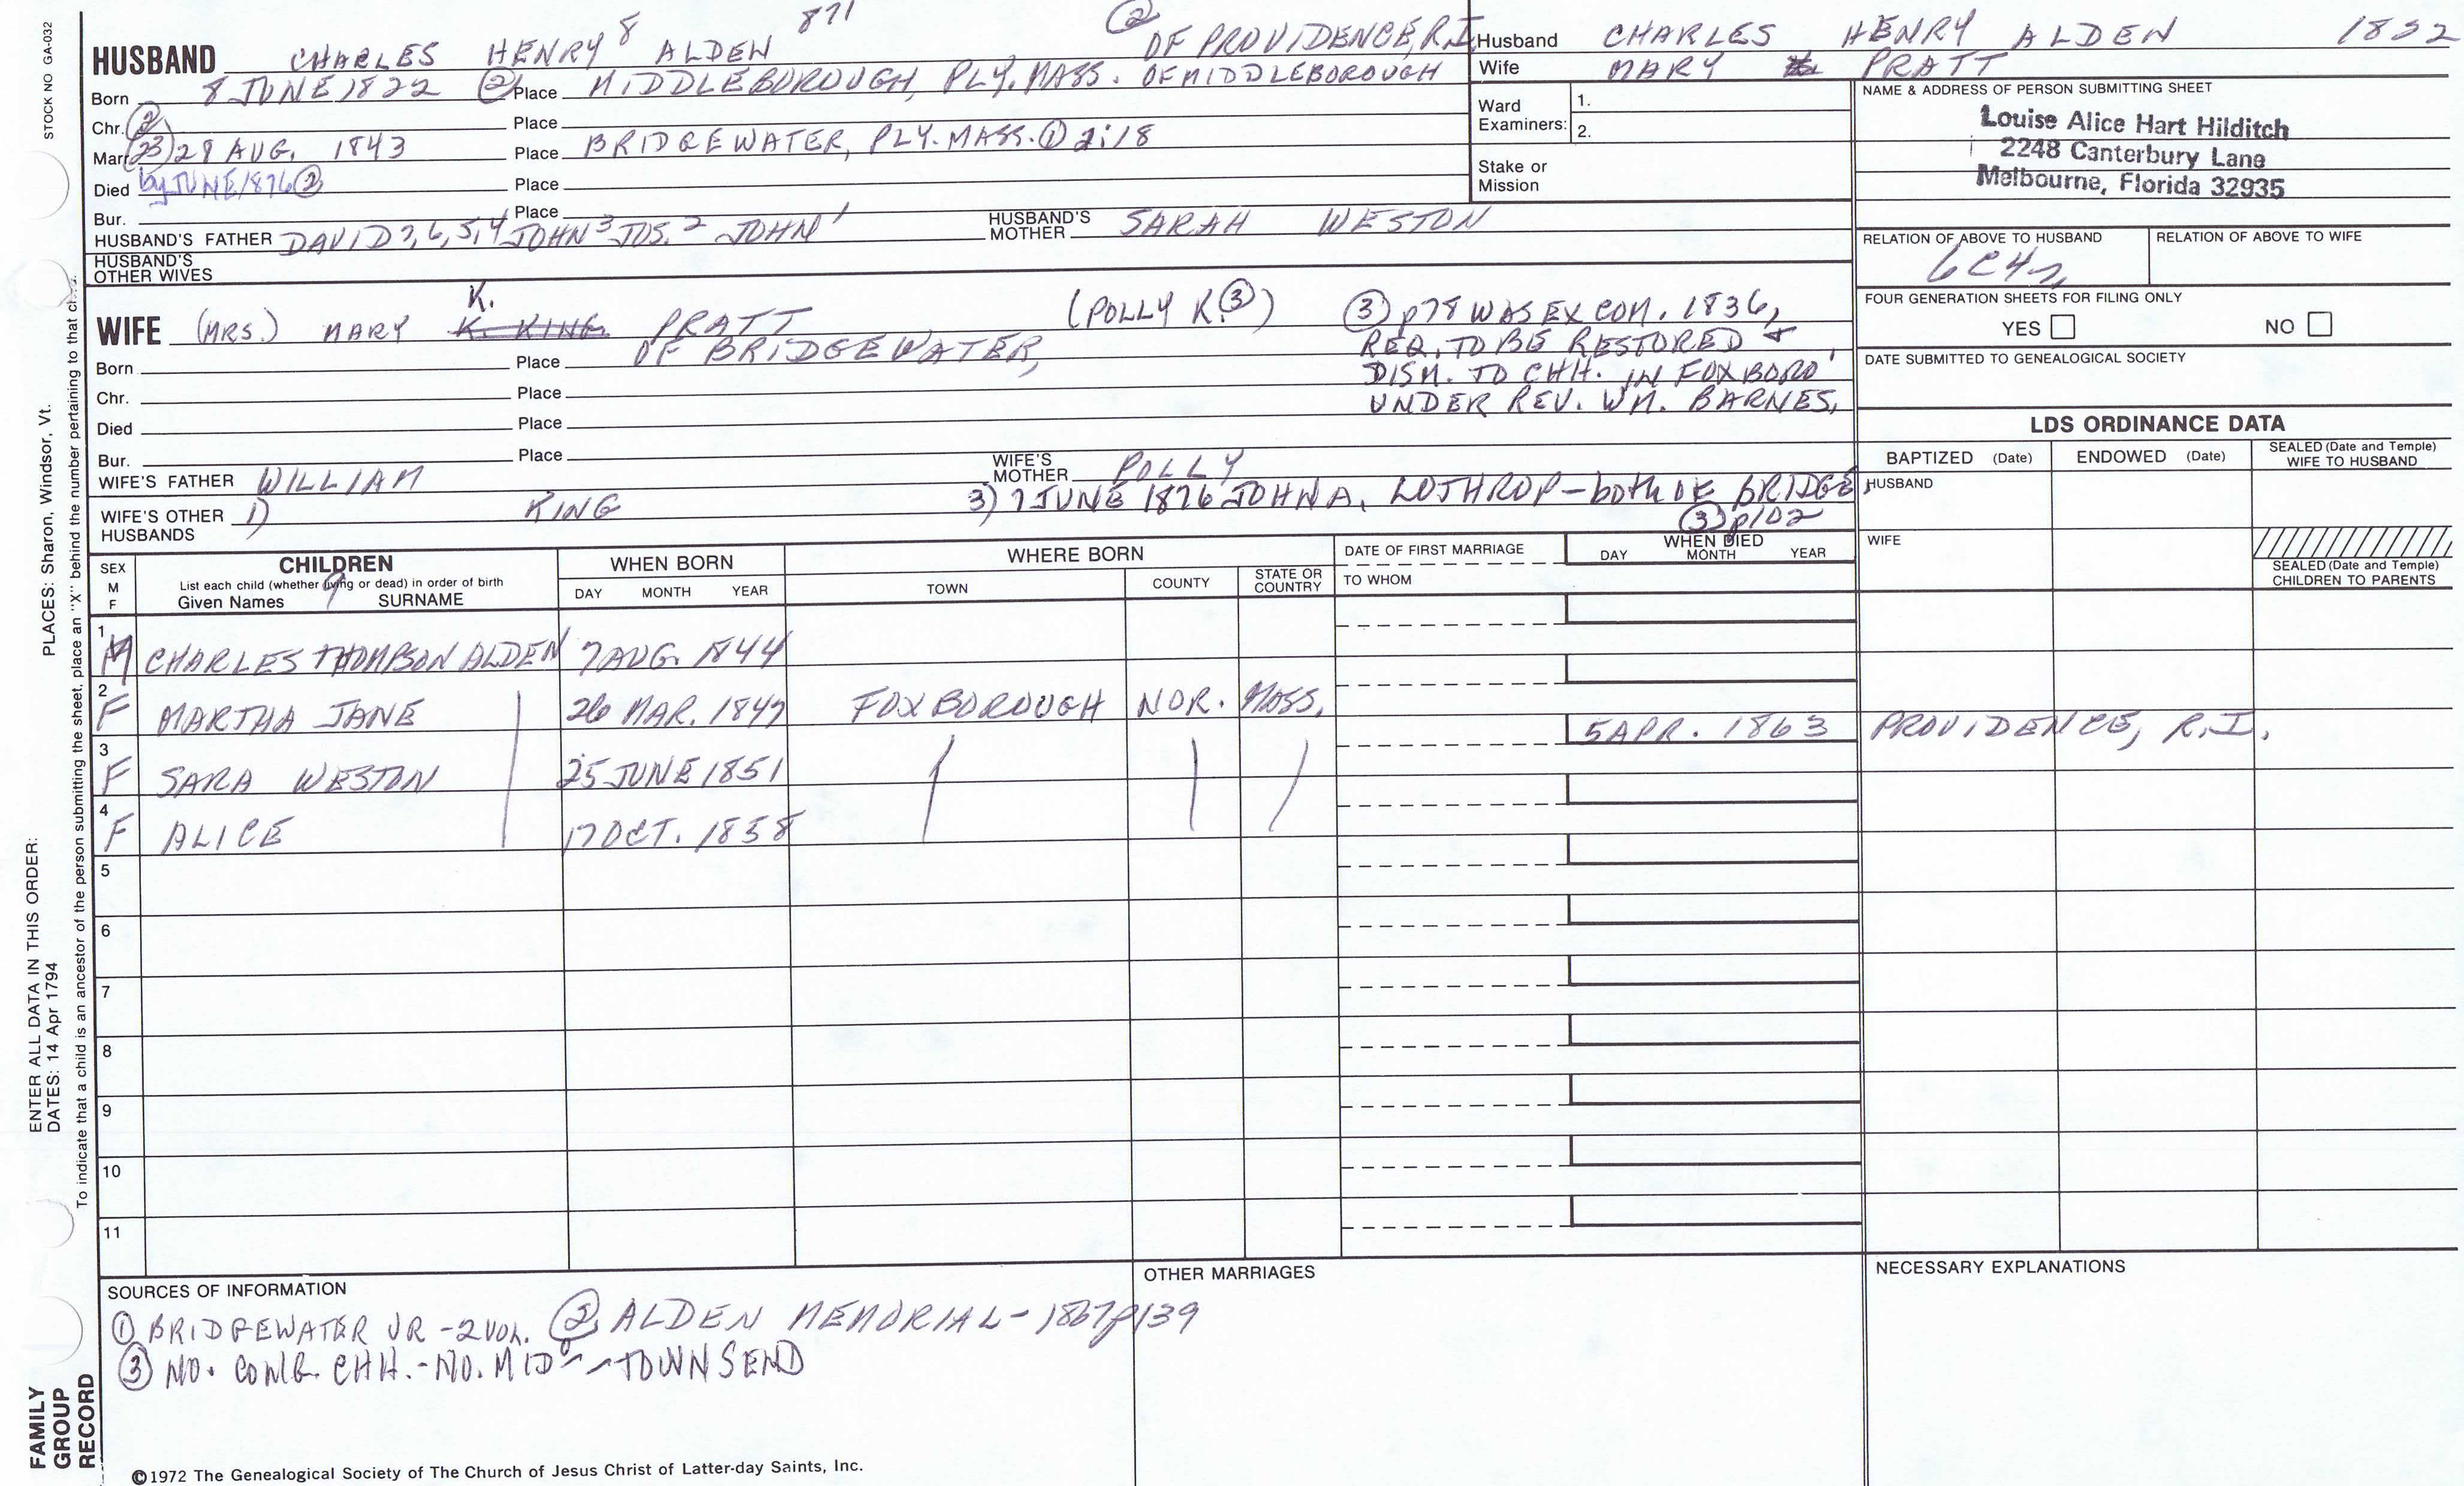 STOCK NO GA-032
8 871 ② OF PROVIDENCE, R.I.
HUSBAND CHARLES HENRY ALDEN
Born 8 JUNE 1822 ② Place MIDDLEBOROUGH, PLY. MASS. OF MIDDLEBOROUGH
Chr. Place
Marr. (23) 28 AUG. 1843 Place BRIDGEWATER, PLY. MASS. ① 2:18
Died by JUNE 1876 ② Place
Bur. Place
HUSBAND'S FATHER DAVID 7,6,5,4 JOHN 3 JOS. 2 JOHN 1 HUSBAND'S MOTHER SARAH WESTON
HUSBAND'S OTHER WIVES
Husband CHARLES HENRY ALDEN 1822
Wife MARY PRATT
Ward Examiners: 1.
2.
Stake or Mission
NAME & ADDRESS OF PERSON SUBMITTING SHEET
Louise Alice Hart Hilditch
2248 Canterbury Lane
Melbourne, Florida 32935
RELATION OF ABOVE TO HUSBAND RELATION OF ABOVE TO WIFE
FOUR GENERATION SHEETS FOR FILING ONLY
YES NO
DATE SUBMITTED TO GENEALOGICAL SOCIETY
K.
WIFE (MRS.) MARY K. KING PRATT (POLLY K. ③)
Born Place OF BRIDGEWATER,
③ p78 WAS EX COM. 1836,
REQ. TO BE RESTORED &
DISM. TO CHH. IN FOXBORO
UNDER REV. WM. BARNES,
Chr. Place
Died Place
Bur. Place
WIFE'S FATHER WILLIAM WIFE'S MOTHER POLLY
WIFE'S OTHER HUSBANDS 1) KING 3) 7 JUNE 1876 JOHN A. LOTHROP - both OF BRIDGE,
③ p102
LDS ORDINANCE DATA
BAPTIZED (Date) ENDOWED (Date) SEALED (Date and Temple) WIFE TO HUSBAND
HUSBAND
WIFE
SEALED (Date and Temple) CHILDREN TO PARENTS
SEX M F
CHILDREN
List each child (whether living or dead) in order of birth
Given Names SURNAME
9
WHEN BORN
DAY MONTH YEAR
WHERE BORN
TOWN COUNTY STATE OR COUNTRY
DATE OF FIRST MARRIAGE
TO WHOM
WHEN DIED
DAY MONTH YEAR
1 M CHARLES THOMPSON ALDEN 7 AUG. 1844
2 F MARTHA JANE 26 MAR. 1847 FOXBOROUGH NOR. MASS.
5 APR. 1863 PROVIDENCE, R.I.
3 F SARA WESTON 25 JUNE 1851
4 F ALICE 17 OCT. 1858
5
6
7
8
9
10
11
SOURCES OF INFORMATION
① BRIDGEWATER VR - 2 VOL. ② ALDEN MEMORIAL - 1867 p139
③ NO. CONG. CHH. - NO. MID - TOWNSEND
OTHER MARRIAGES
NECESSARY EXPLANATIONS
©1972 The Genealogical Society of The Church of Jesus Christ of Latter-day Saints, Inc.
FAMILY
GROUP
RECORD
ENTER ALL DATA IN THIS ORDER:
DATES: 14 Apr 1794
PLACES: Sharon, Windsor, Vt.
To indicate that a child is an ancestor of the person submitting the sheet, place an "X" behind the number pertaining to that